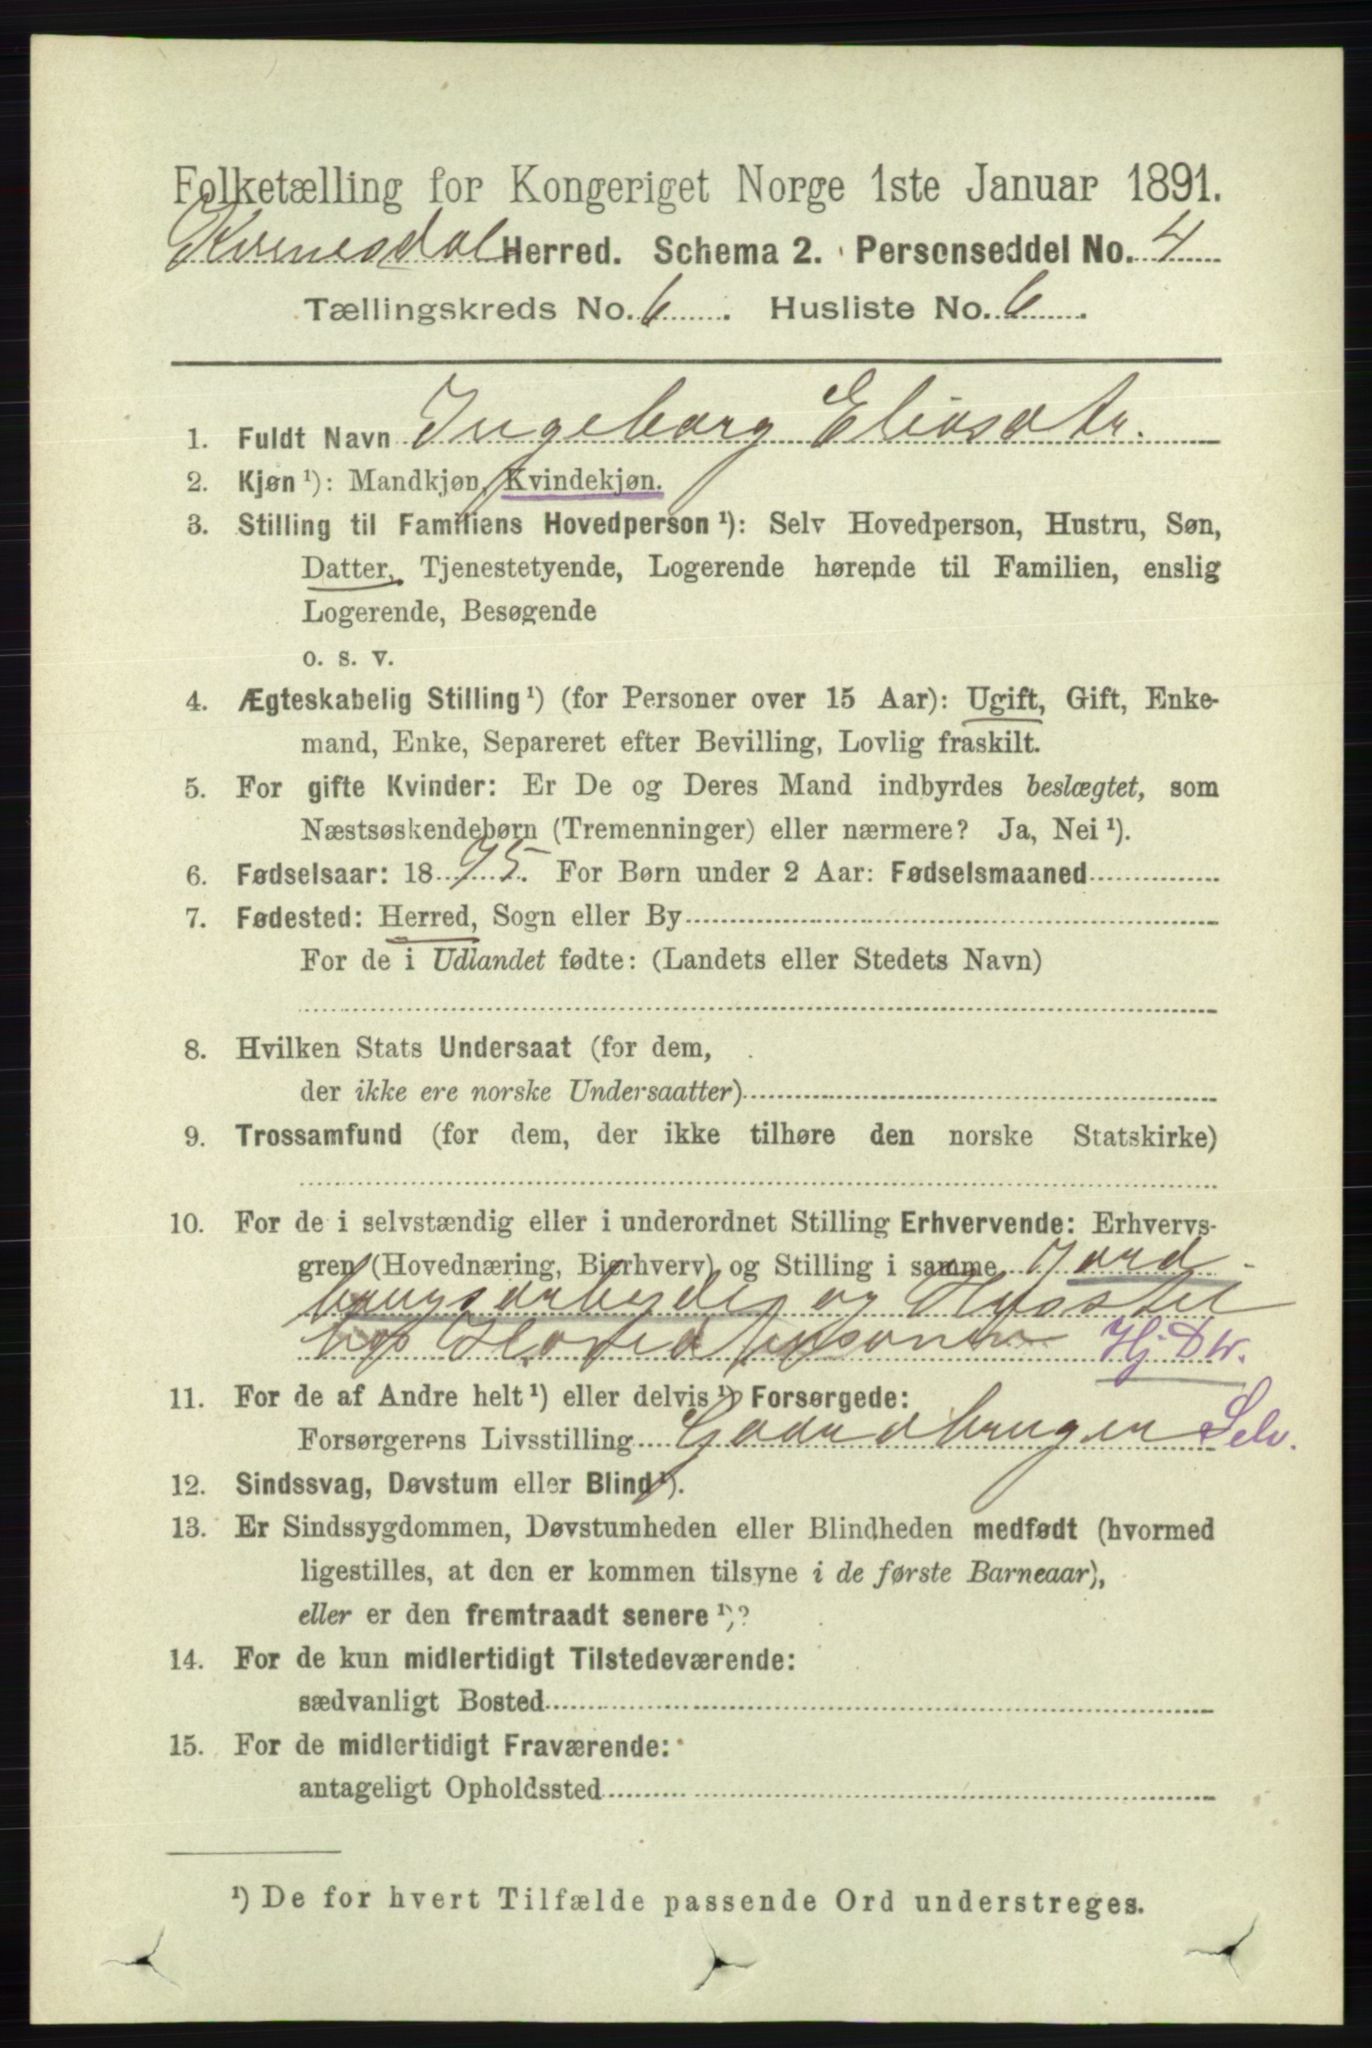 Folketælling for Kongeriget Norge 1ste Januar 1891.
Kvinesdal Herred. Schema 2. Personseddel No. 4
Tællingskreds No. 6. Husliste No. 6.
1. Fuldt Navn Ingeborg Eliasdtr.
2. Kjøn ¹): Mandkjøn, Kvindekjøn.
3. Stilling til Familiens Hovedperson ¹): Selv Hovedperson, Hustru, Søn,
Datter, Tjenestetyende, Logerende hørende til Familien, enslig
Logerende, Besøgende
o. s. v.
4. Ægteskabelig Stilling ¹) (for Personer over 15 Aar): Ugift, Gift, Enke-
mand, Enke, Separeret efter Bevilling, Lovlig fraskilt.
5. For gifte Kvinder: Er De og Deres Mand indbyrdes beslægtet, som
Næstsøskendebørn (Tremenninger) eller nærmere? Ja, Nei ¹).
6. Fødselsaar: 1875. For Børn under 2 Aar: Fødselsmaaned
7. Fødested: Herred, Sogn eller By
For de i Udlandet fødte: (Landets eller Stedets Navn)
8. Hvilken Stats Undersaat (for dem,
der ikke ere norske Undersaatter)
9. Trossamfund (for dem, der ikke tilhøre den norske Statskirke)
10. For de i selvstændig eller i underordnet Stilling Erhvervende: Erhvervs-
gren (Hovednæring, Bierhverv) og Stilling i samme Jord-
brugsarbeyde og Husstel
Hovedpersonen Hj. Dtr.
11. For de af Andre helt ¹) eller delvis ¹) Forsørgede:
Forsørgerens Livsstilling Gaardbruger Selv.
12. Sindssvag, Døvstum eller Blind ¹).
13. Er Sindssygdommen, Døvstumheden eller Blindheden medfødt (hvormed
ligestilles, at den er kommen tilsyne i de første Barneaar),
eller er den fremtraadt senere ¹)?
14. For de kun midlertidigt Tilstedeværende:
sædvanligt Bosted
15. For de midlertidigt Fraværende:
antageligt Opholdssted
¹) De for hvert Tilfælde passende Ord understreges.